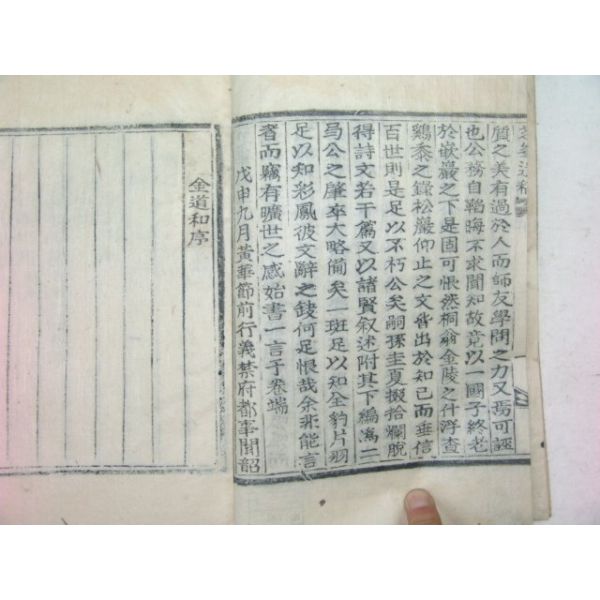 質之美有過於人而師友學問之力又焉可誣
也公務自韜晦不求聞知故竟以一國子終老
於嵌巖之下是固可悵然桐翁金陵之什浮查
鷄黍之錄松巖仰止之文皆出於知己而垂信
百世則是足以不朽公矣嗣孫圭夏掇拾爛脫
得詩文若干篇又以諸賢叙述附其下編為二
局公之肇卒大略備矣一斑足以知全豹片羽
足以知彩鳳彼文辭之錢何足恨哉余非能言
者而竊有曠世之感始書一言于卷端
戊申九月黃華節前行義禁府都事聞韶
金道和序